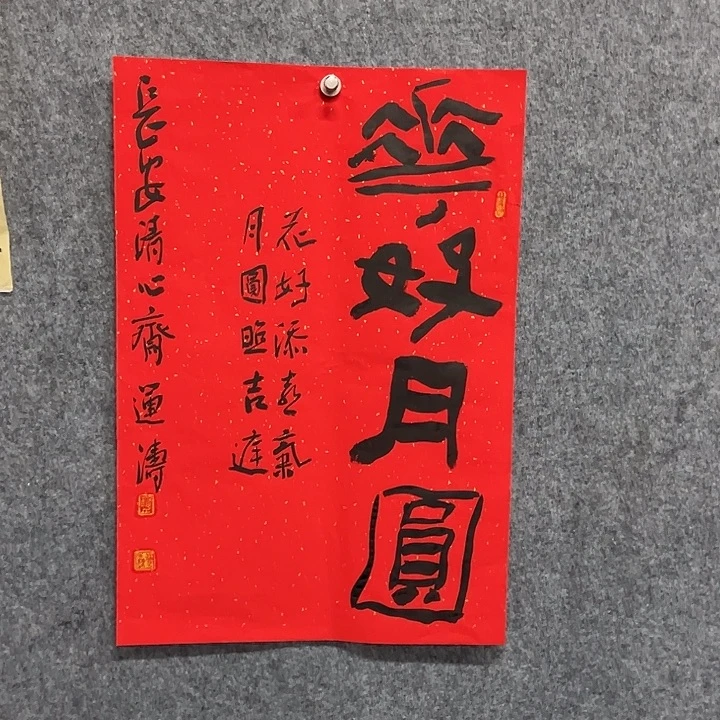 華好月圓
花好添喜氣
月圓照吉達
長安清心齋運濤